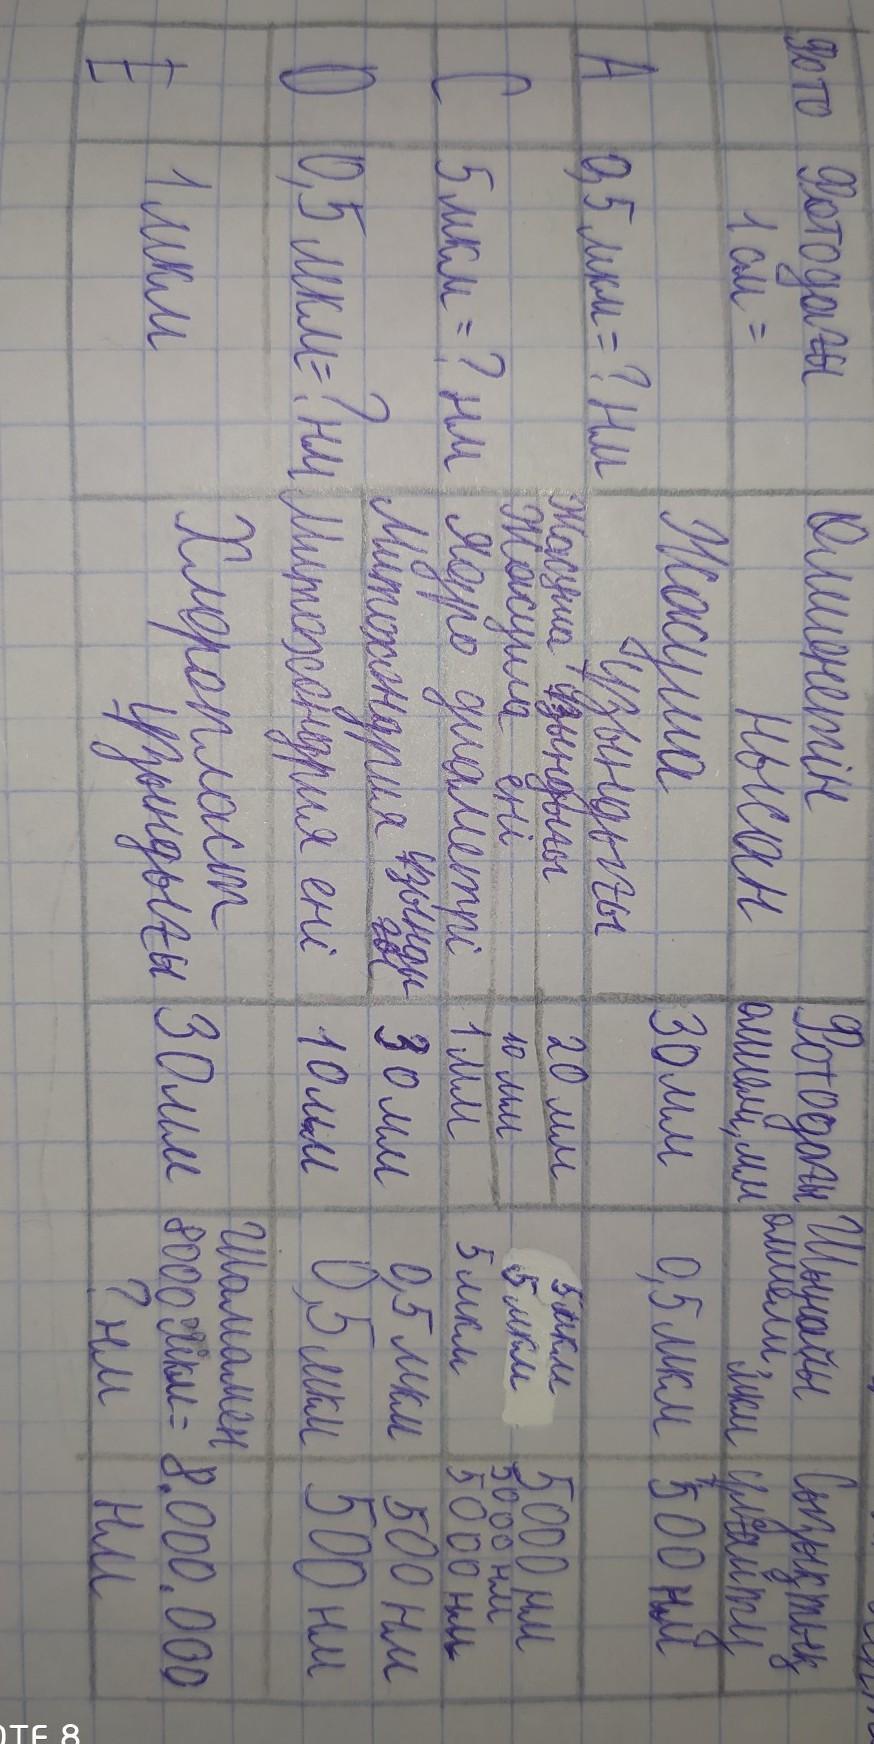 Фото
Фотодағы
1 см =
Өлшенетін
нысан
Фотодағы
өлшемі, мм
Шынайы
өлшемі, мкм
Сызықтық
ұлғайту
A
0,5 мкм = ? нм
Жасуша
ұзындығы
30мм
0,5 мкм
500 нм
C
5 мкм = ? нм
Жасуша ұзындығы
20 мм
5 мкм
5000 нм
Жасуша ені
10 мм
5 мкм
5000 нм
Ядро диаметрі
1 мм
5 мкм
5000 нм
D
0,5 мкм = ? нм
Митохондрия ұзынды
ғы
30 мм
0,5 мкм
500 нм
Митохондрия ені
10мм
0,5 мкм
500 нм
E
1 мкм
Хлоропласт
ұзындығы
30мм
Шамамен
8000 мкм =
? нм
8.000.000
нм
OTE 8